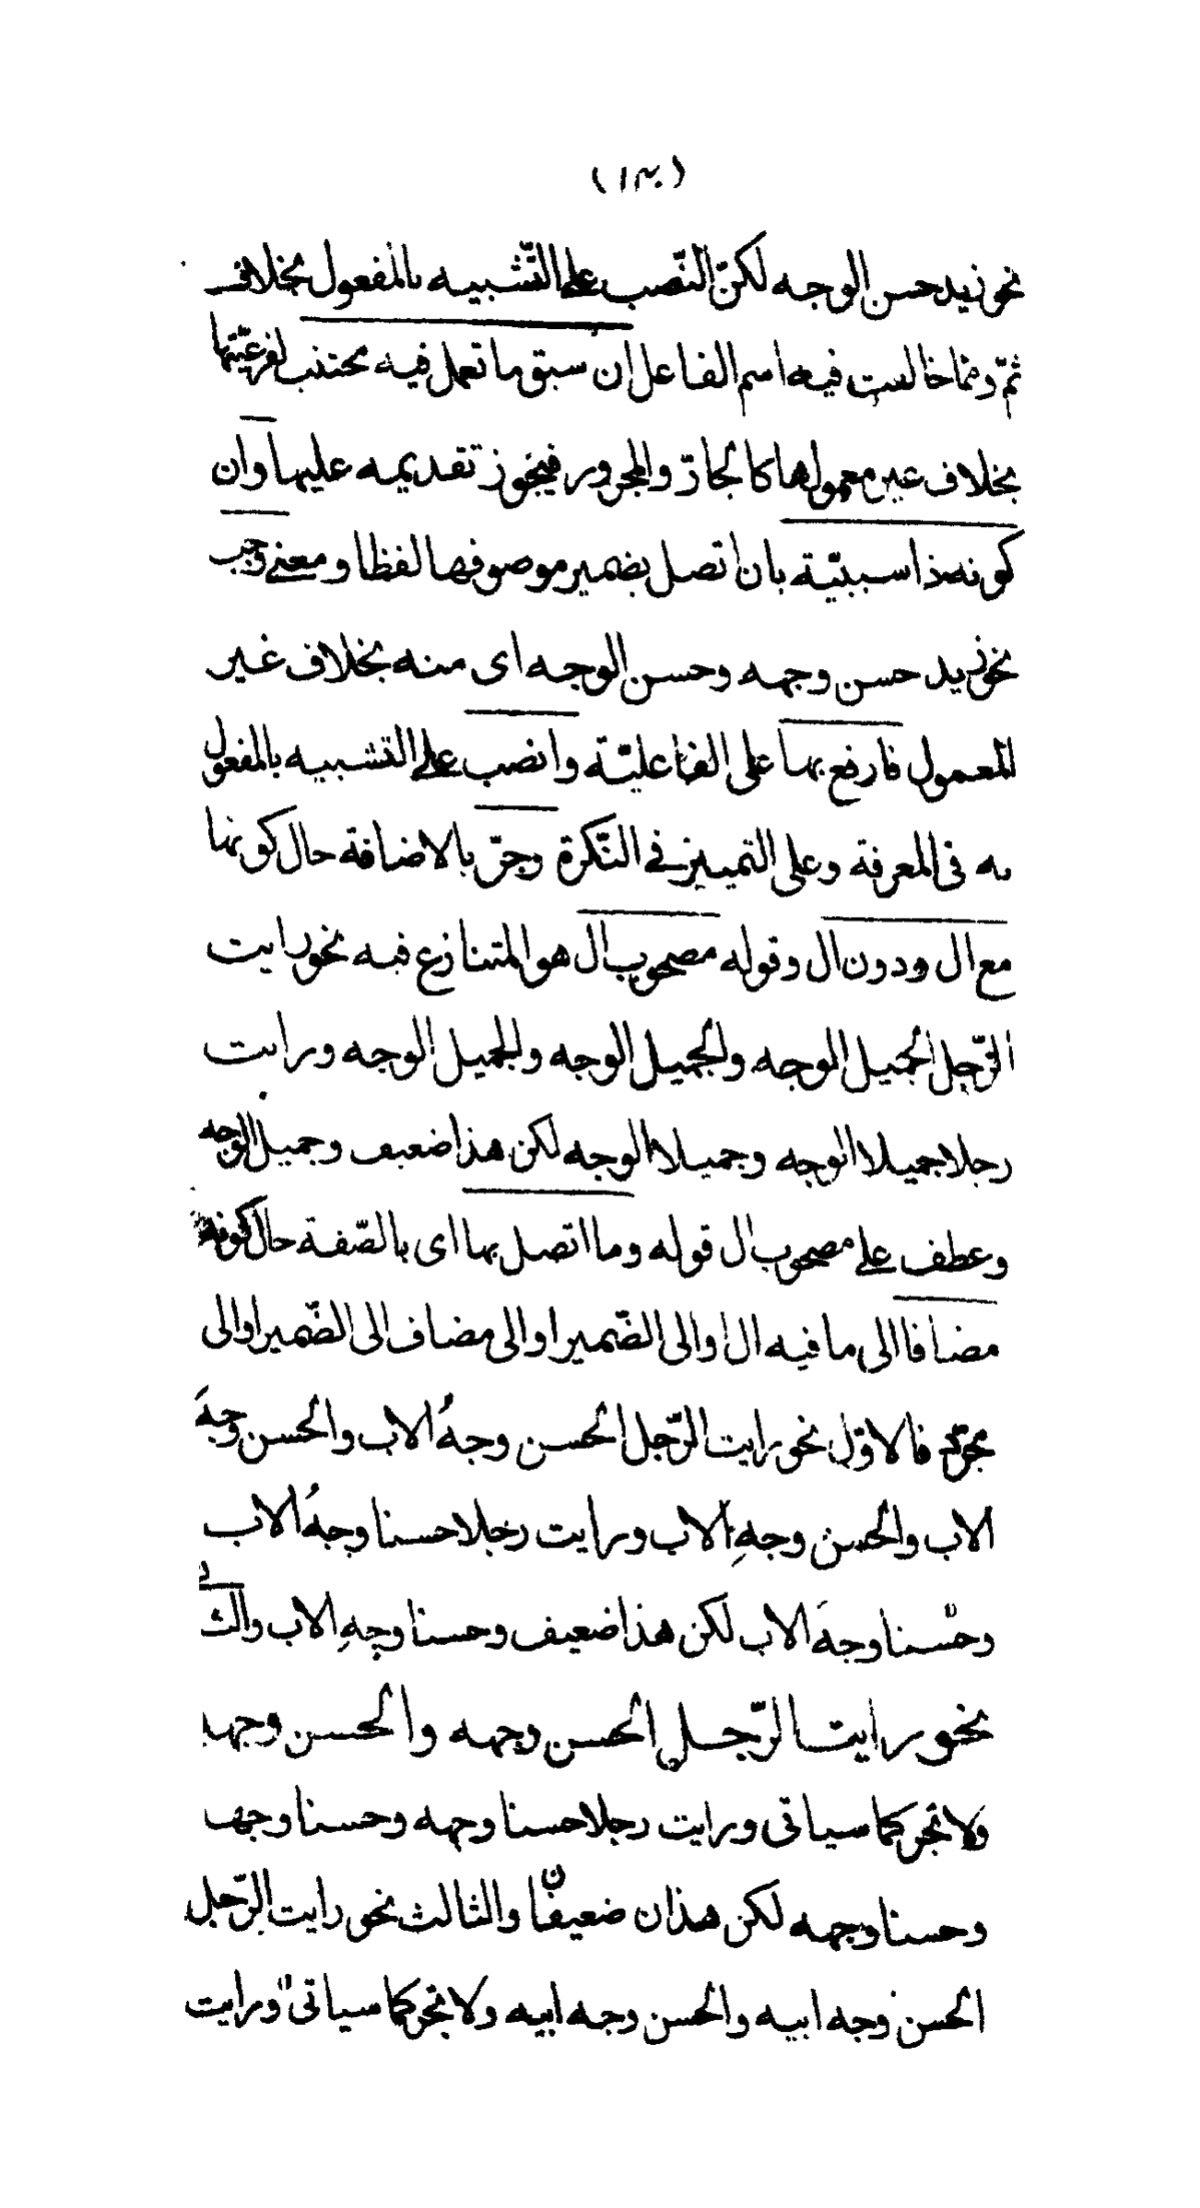 نحو زيد حسن الوجه لكنّ النّصب على التّشبيه بالمفعول بخلافه
ثمّ وممّا خالفت فيه اسم الفاعل ان سبق ما تعمل فيه مجتنب لفرعيّتها
بخلاف غير معمولها كالجارّ والمجرور فيجوز تقديمه عليها وان
كونه ذا سببيّة بان اتصل بضمير موصوفها لفظا ومعنى وجب
نحو زيد حسن وجهه وحسن الوجه اى منه بخلاف غير
المعمول فارفع بها على الفاعليّة وانصب على التشبيه بالمفعول
به فى المعرفة وعلى التمييز فى النّكرة وجرّ بالاضافة حال كونها
مع ال ودون ال وقوله مصحوب ال هو المتنازع فيه نحو رايت
الرّجل الجميل الوجه والجميل الوجه والجميل الوجه ورايت
رجلا جميلا الوجه وجميلا الوجه لكن هذا ضعيف وجميل الوجه
وعطف على مصحوب ال قوله وما اتصل بها اى بالصّفة حال كونه
مضافا الى ما فيه ال او الى الضّمير او الى مضاف الى الضّمير او الى
مجرّد فالاوّل نحو رايت الرّجل الحسن وجهُ الاب والحسن وجهَ
الاب والحسن وجهِ الاب ورايت رجلا حسنا وجهُ الاب
وحسنا وجهَ الاب لكن هذا ضعيف وحسنا وجهِ الاب والثانى
نحو رايت الرّجل الحسن وجهه والحسن وجهه
ولا تجر كما سياتى ورايت رجلا حسنا وجهه وحسنا وجهه
وحسنا وجهه لكن هذان ضعيفان والثالث نحو رايت الرّجل
الحسن وجه ابيه والحسن وجه ابيه ولا تجر كما سياتى ورايت